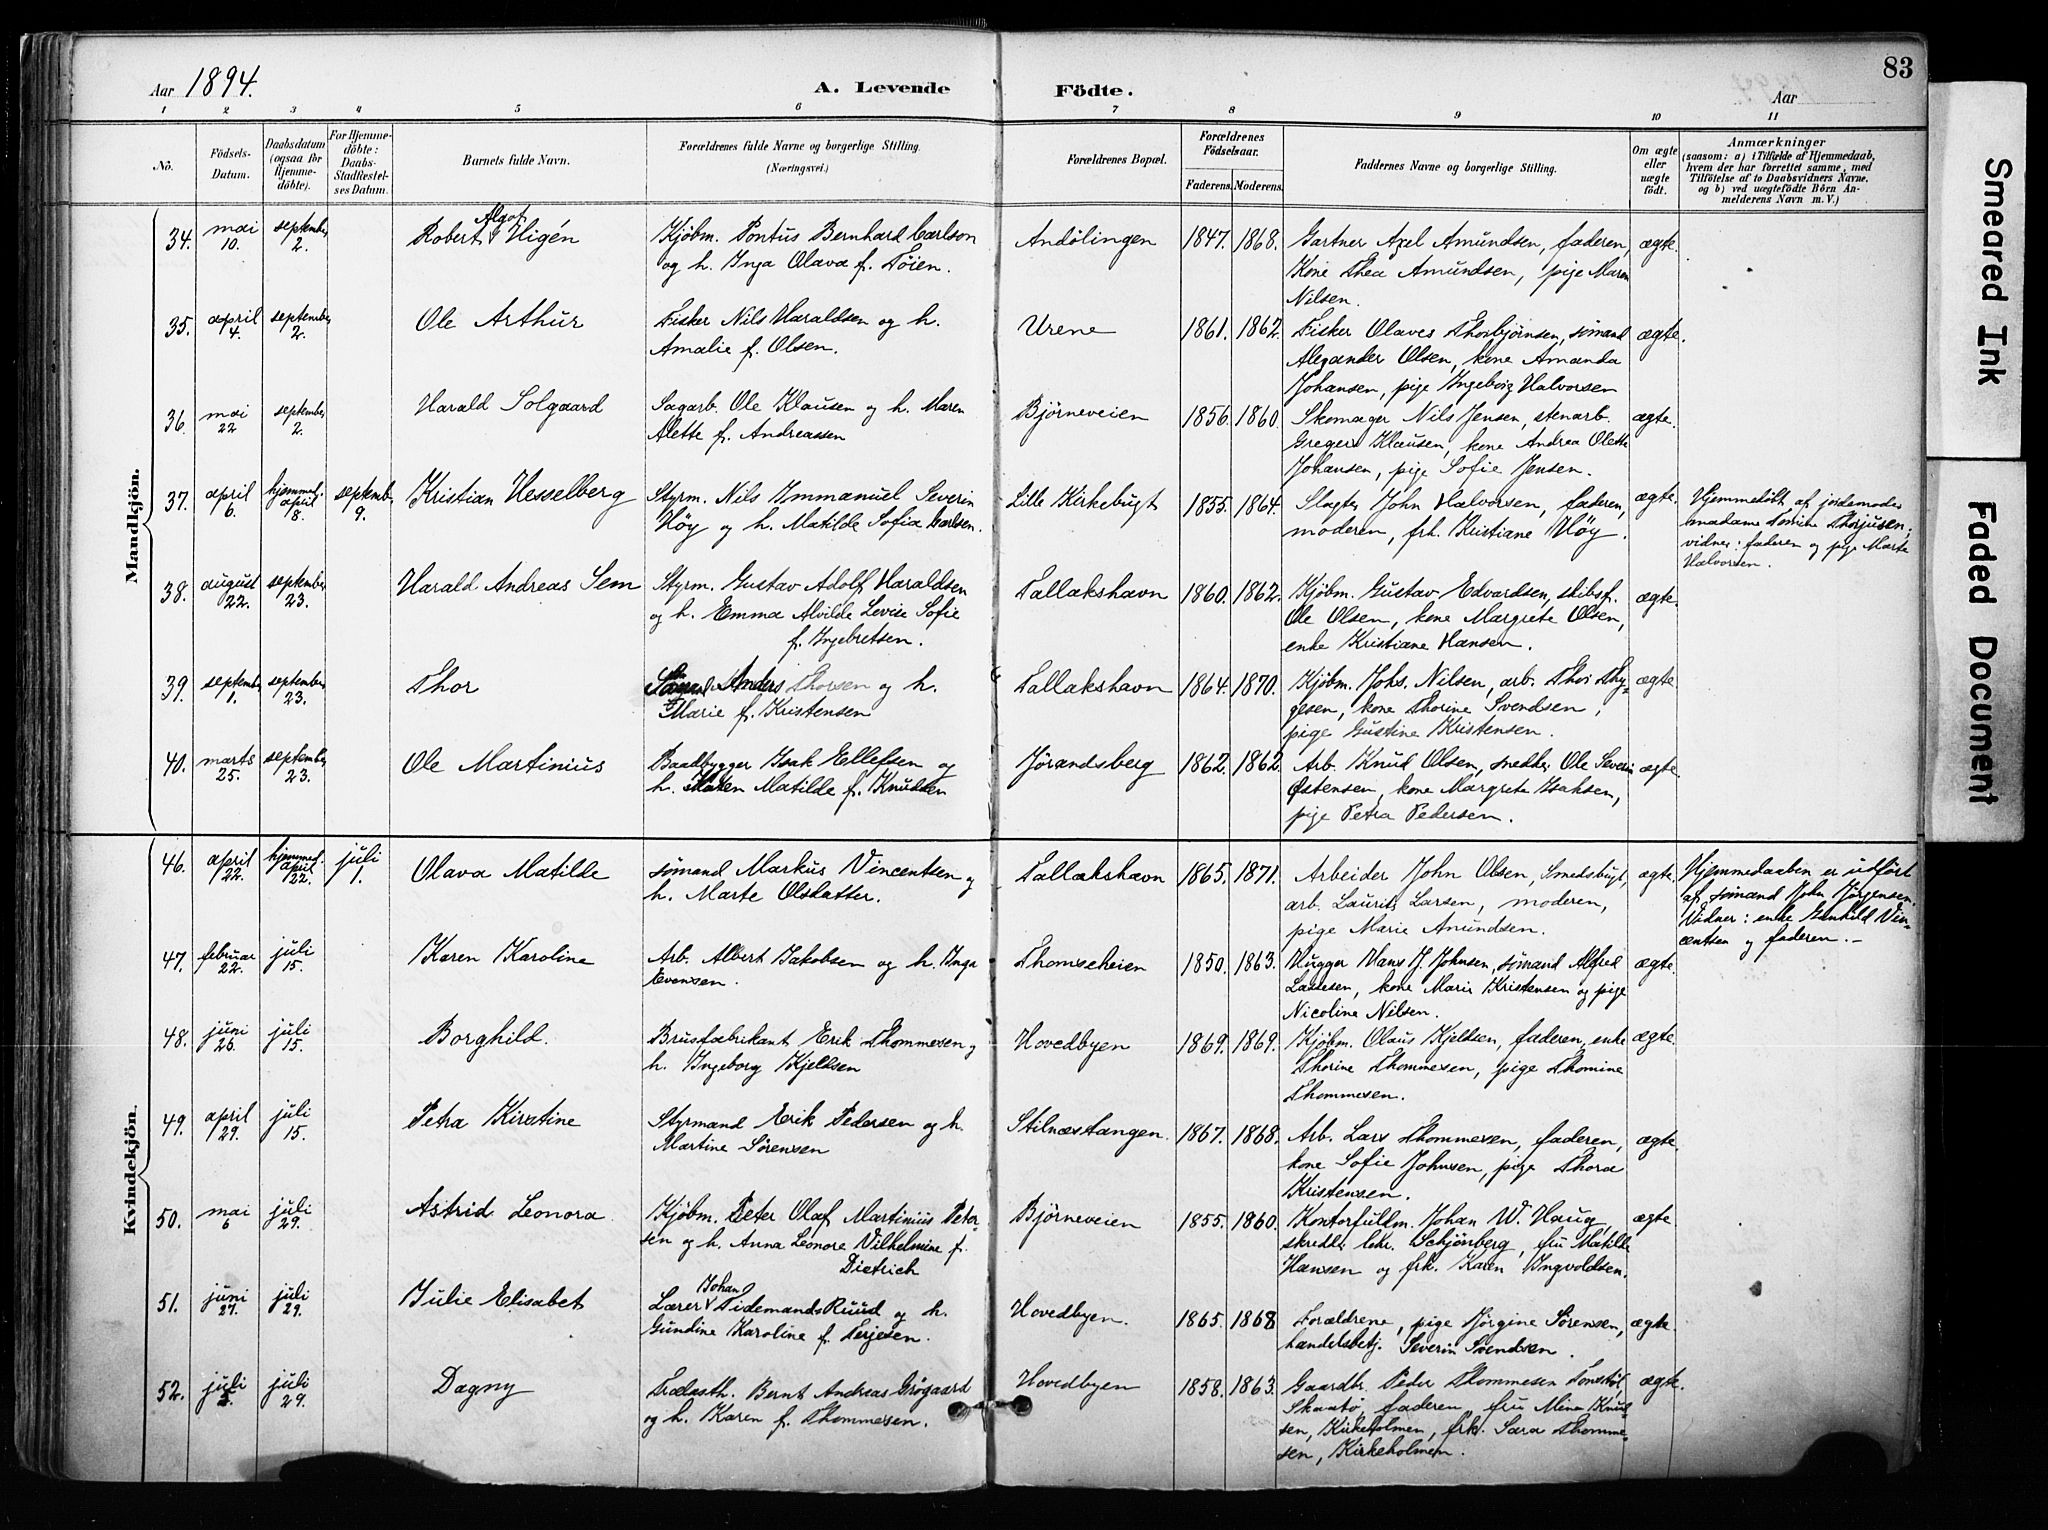 83
Aar 1894.
A. Levende Födte.
Aar
1 2 3 4 5 6 7 8 9 10 11
No.
Födsels-Datum.
Daabsdatum (ogsaa for Hjemme-döbte).
For Hjemme-döbte: Daabs-Stadfæstel-ses Datum.
Barnets fulde Navn.
Forældrenes fulde Navne og borgerlige Stilling. (Næringsvei.)
Forældrenes Bopæl.
Forældrenes Födselsaar.
Faderens. Moderens.
Faddernes Navne og borgerlige Stilling.
Om ægte eller uægte födt.
Anmærkninger
(saasom: a) i Tilfælde af Hjemmedaab,
hvem der har forrettet samme, med
Tilföielse af to Daabsvidners Navne,
og b) ved uægtefödte Börn An-
melderens Navn m. V.)
Mandkjön.
34. mai 10. september 2. Robert Algot Higén Kjøbm. Pontus Bernhard Carlson Andølingen 1847. 1868. Gartner Axel Amundsen, faderen, ægte.
og h. Inga Olava f. Tøien. Kone Thea Amundsen, pige Maren
Nilsen.
35. april 4. september 2. Ole Arthur Fisker Nils Haraldsen og h. Urene 1861. 1862. Fisker Olaves Thorbjørnsen, sømand ægte.
Amalie f. Olsen. Alexander Olsen, kone Amanda
Johansen, pige Ingeborg Halvorsen
36. mai 22 september 2. Harald Solgaard Sagarb. Ole Klausen og h. Maren Bjørneveien 1856. 1860. Skomager Nils Jensen, stenarb. ægte.
Alette f. Andreassen Gregers Klausen, kone Andrea Olette
Johansen, pige Sofie Jensen.
37. april 6. hjemmed. april 8. septemb. 9. Kristian Hesselberg Styrm. Nils Immanuel Severin Lille Kirkebugt 1855. 1864. Slagter John Halvorsen, faderen, ægte. Hjemmedøbt af jordemoder
Høy og h. Matilde Sofia Carlsen. moderen, frk. Kristiane Høy. madame Tomine Thorjusen;
vidner: faderen og pige Marte
Halvorsen.
38. august 22. september 23. Harald Andreas Sem Styrm. Gustav Adolf Haraldsen Tallakshavn 1860. 1862. Kjøbm. Gustav Edvardsen, skibsf. ægte.
og h. Emma Alvilde Levise Sofie Ole Olsen, kone Margrete Olsen,
f. Ingebretsen. enke Kristiane Hansen.
39. september 1. september 23. Thor Anders Thorsen og h. Tallakshavn 1864. 1870. Kjøbm. Johs. Nilsen, arb. Thor Thy- ægte.
Marie f. Kristensen gesen, kone Thorine Svendsen,
pige Gustine Kristensen.
40. marts 25. september 23. Ole Martinius Baadbygger Isak Ellefsen og Jørandsberg 1862. 1862. Arb. Knud Olsen, snedker Ole Severin ægte.
h. Maren Matilde f. Knudsen Østensen, kone Margrete Isaksen,
pige Petra Pedersen.
Kvindekjön.
46. april 22. hjemmed. april 22. juli 1. Olava Matilde sømand Markus Vincentsen og Tallakshavn 1865. 1871. Arbeider John Olsen, Smedsbugt, ægte. Hjemmedaaben er udført
h. Marte Olsdatter. arb. Laurits Larsen, moderen, af sømand John Jørgensen.
pige Marie Amundsen. Vidner: enke Gunhild Vin-
centsen og faderen. –
47. februar 22. juli 15. Karen Karoline Arb. Albert Jakobsen og h. Inga Thomseheien 1850. 1863. Hugger Hans J. Johnsen, sømand Alfred ægte.
Evensen. Lassesen, kone Marie Kristensen og pige
Nicoline Nilsen.
48. juni 26. juli 15. Borghild. Brusfabrikant Erik Thommesen og Hovedbyen 1869. 1869. Kjøbm. Olaus Kjeldsen, faderen, enke ægte.
h. Ingeborg Kjeldsen Thorine Thommesen, pige Thomine
Thommesen.
49. april 29. juli 15. Petra Kirstine Styrmand Erik Pedersen og h. Stilnæstangen. 1867. 1868. Arb. Lars Thommesen, faderen, ægte.
Martine Sørensen kone Sofie Johnsen, pige Thora
Kristensen.
50. mai 6 juli 29. Astrid Leonora Kjøbm. Peter Olaf Martinius Peter- Bjørneveien 1855. 1860. Kontorfullm. Johan W. Haug, ægte
sen og h. Anna Leonore Vilhelmine f. skredder Schjönberg, fru Matilde
Dietrich Hansen og frk. Karen Ingvoldsen.
51. juni 27. juli 29. Julie Elisabet Lærer Johan Tidemand Ruud og h. Hovedbyen. 1865. 1868 Forældrene, pige Jørgine Sørensen, ægte.
Gundine Karoline f. Terjesen. handelsbetj. Severin Svendsen.
52. juli juli 29. Dagny Trælasth. Bernt Andreas Grøgaard Hovedbyen 1858. 1863. Gaardbr. Peder Thommesen Tonstøl, ægte.
og h. Karen f. Thommesen. Skaatø, faderen, fru Mina Knud-
sen, Kirkeholmen, frk. Sara Thomme-
sen, Kirkeholmen.
Smeared Ink
Faded Document